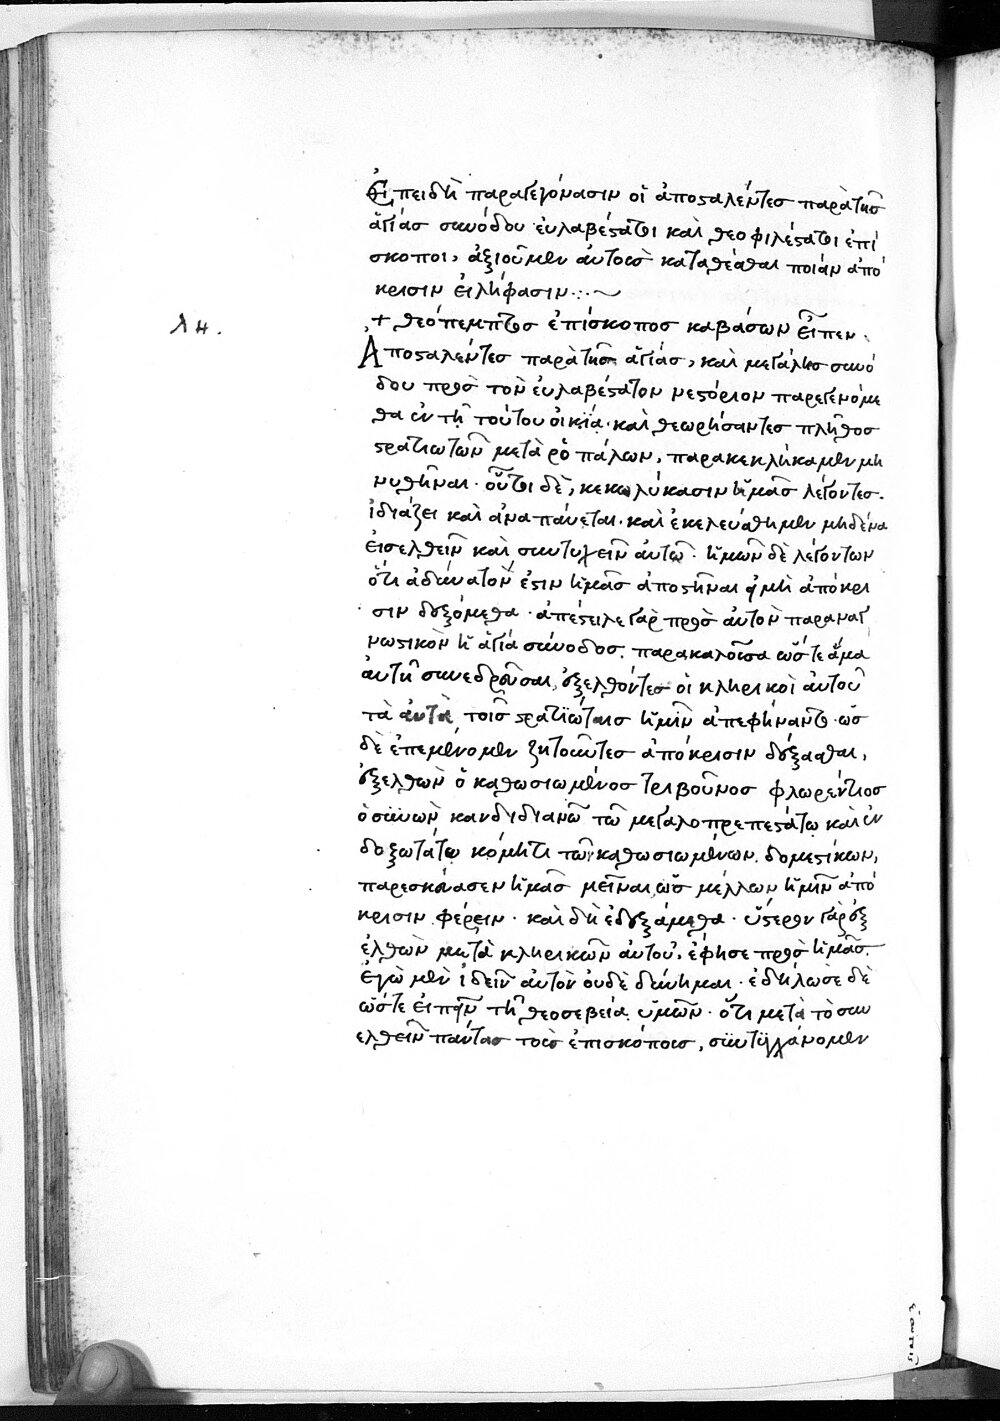 Ἐπειδὴ παραγεγόνασιν οἱ ἀποσταλέντες παρὰ τῆς
ἁγίας συνόδου εὐλαβέστατοι καὶ θεοφιλέστατοι ἐπί
σκοποι, ἀξιοῦμεν αὐτοὺς καταθέσθαι ποίαν ἀπό
κρισιν εἰλήφασιν :~
+ θεόπεμπτος ἐπίσκοπος καβάσων εἶπεν.
λη.
Ἀποσταλέντες παρὰ τῆς ἁγίας, καὶ μεγάλης συνό
δου πρὸς τὸν εὐλαβέστατον νεστόριον παρεγενόμε
θα ἐν τῇ τούτου οἰκίᾳ· καὶ θεωρήσαντες πλῆθος
στρατιωτῶν μετὰ ῥοπάλων, παρακεκλήκαμεν μη
νυθῆναι· οὗτοι δὲ, κεκωλύκασιν ἡμᾶς λέγοντες.
ἰδιάζει καὶ ἀναπαύεται· καὶ ἐκελεύσθημεν μηδένα
εἰσελθεῖν καὶ συντυχεῖν αὐτῷ· ἡμῶν δὲ λεγόντων
ὅτι ἀδύνατόν ἐστιν ἡμᾶς ἀποστῆναι εἰ μὴ ἀπόκρι
σιν δεξόμεθα· ἀπέστειλε γὰρ πρὸς αὐτὸν παραναγ
νωστικὸν ἡ ἁγία σύνοδος. παρακαλοῦσα ὥστε ἅμα
αὐτῇ συνεδρεῦσαι, ἐξελθόντες οἱ κληρικοὶ αὐτοῦ
τὰ αὐτὰ τοῖς στρατιώταις ἡμῖν ἀπεφήναντο· ὡς
δὲ ἐπεμένομεν ζητοῦντες ἀπόκρισιν δέξασθαι,
ἐξελθὼν ὁ καθωσιωμένος τριβοῦνος φλωρέντιος
ὁ συνὼν κανδιδιανῷ τῷ μεγαλοπρεπεστάτῳ καὶ ἐν
δοξωτάτῳ κόμητι τῶν καθωσιωμένων δομεστίκων,
παρεσκεύασεν ἡμᾶς μεῖναι, ὡς μέλλων ἡμῖν ἀπό
κρισιν φέρειν· καὶ δὴ ἐδεξάμεθα· ὕστερον γὰρ ἐξ
ελθὼν μετὰ κληρικῶν αὐτοῦ, ἔφησε πρὸς ἡμᾶς.
Ἐγὼ μὲν ἰδεῖν αὐτὸν οὐδὲ δεδύνημαι· ἐδήλωσε δὲ
ὥστε εἰπεῖν τῇ θεοσεβείᾳ ὑμῶν· ὅτι μετὰ τὸ συν
ελθεῖν πάντας τοὺς ἐπισκόπους, συντυγχάνομεν